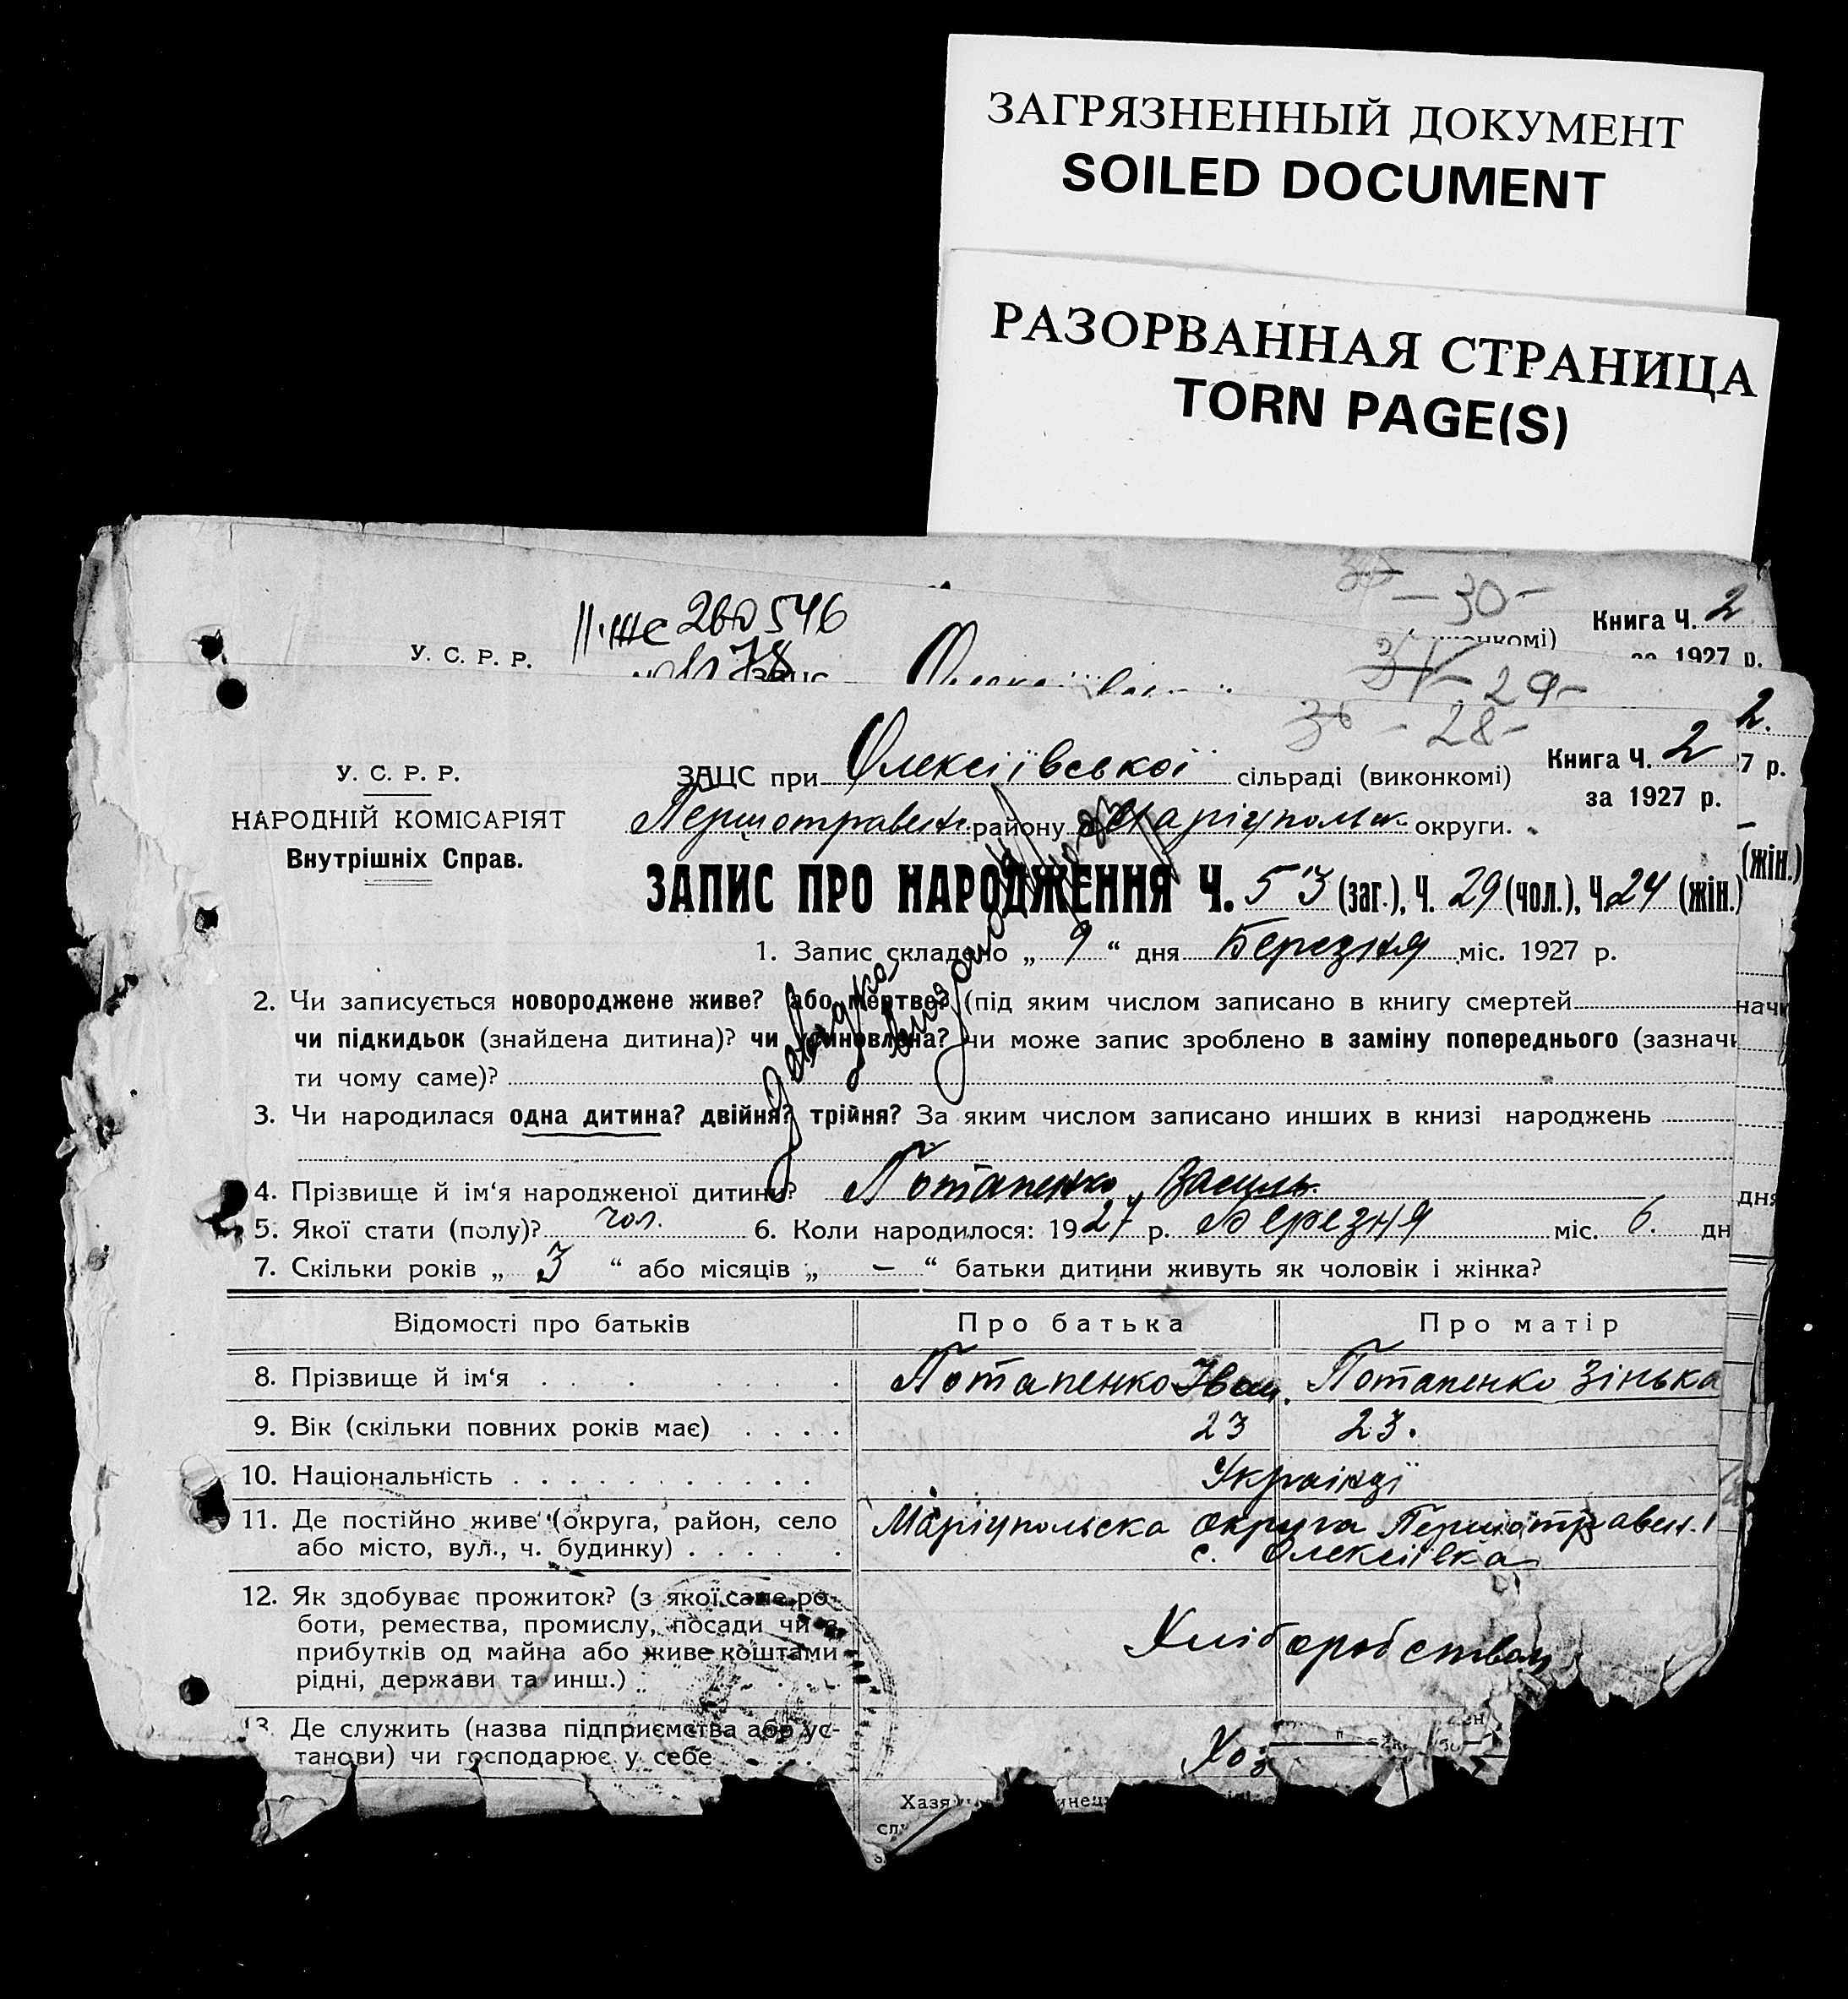 ЗАГРЯЗНЕННЫЙ ДОКУМЕНТ
SOILED DOCUMENT
РАЗОРВАННАЯ СТРАНИЦА
TORN PAGE(S)
- 30 -
Книга Ч. 2
260546
У. С. Р. Р.
за 1927 р.
78
29-
- 28 -
2.
У. С. Р. Р.
ЗАЦС при Олексіївської сільраді (виконкомі)
Книга Ч. 2
7 р.
за 1927 р.
НАРОДНІЙ КОМІСАРІЯТ
Першотравен. району Маріупольск. округи.
Внутрішніх Справ.
(жін.)
ЗАПИС ПРО НАРОДЖЕННЯ Ч. 53 (заг.), Ч. 29 (чол.), Ч. 24 (жін.)
1. Запис складено „ 9 “ дня Березня міс. 1927 р.
довідка видана
2. Чи записується новороджене живе? або мертве? (під яким числом записано в книгу смертей
чи підкидьок (знайдена дитина)? чи усиновлена? чи може запис зроблено в заміну попереднього (зазначи
ти чому саме)?
3. Чи народилася одна дитина? двійня? трійня? За яким числом записано инших в книзі народжень
4. Прізвище й ім‘я народженої дитини? Потапенко Василь.
дня
5. Якої стати (полу)? чол. 6. Коли народилося: 1927 р. Березня міс. 6. дн
7. Скільки років „ 3 “ або місяців „ – “ батьки дитини живуть як чоловік і жінка?
Відомості про батьків Про батька Про матір
8. Прізвище й ім‘я Потапенко Іван. Потапенко Зінька
9. Вік (скільки повних років має) 23 23.
10. Національність Українці
11. Де постійно живе (округа, район, село Маріупольска округа Першотравен.
або місто, вул., ч. будинку) с. Олексіївка
12. Як здобуває прожиток? (з якої саме ро-
боти, ремества, промислу, посади чи з
прибутків од майна або живе коштами Хліборобством
рідні, держави та инш.)
13. Де служить (назва підприємства або ус-
танови) чи господарює у себе Хоз
Хазя